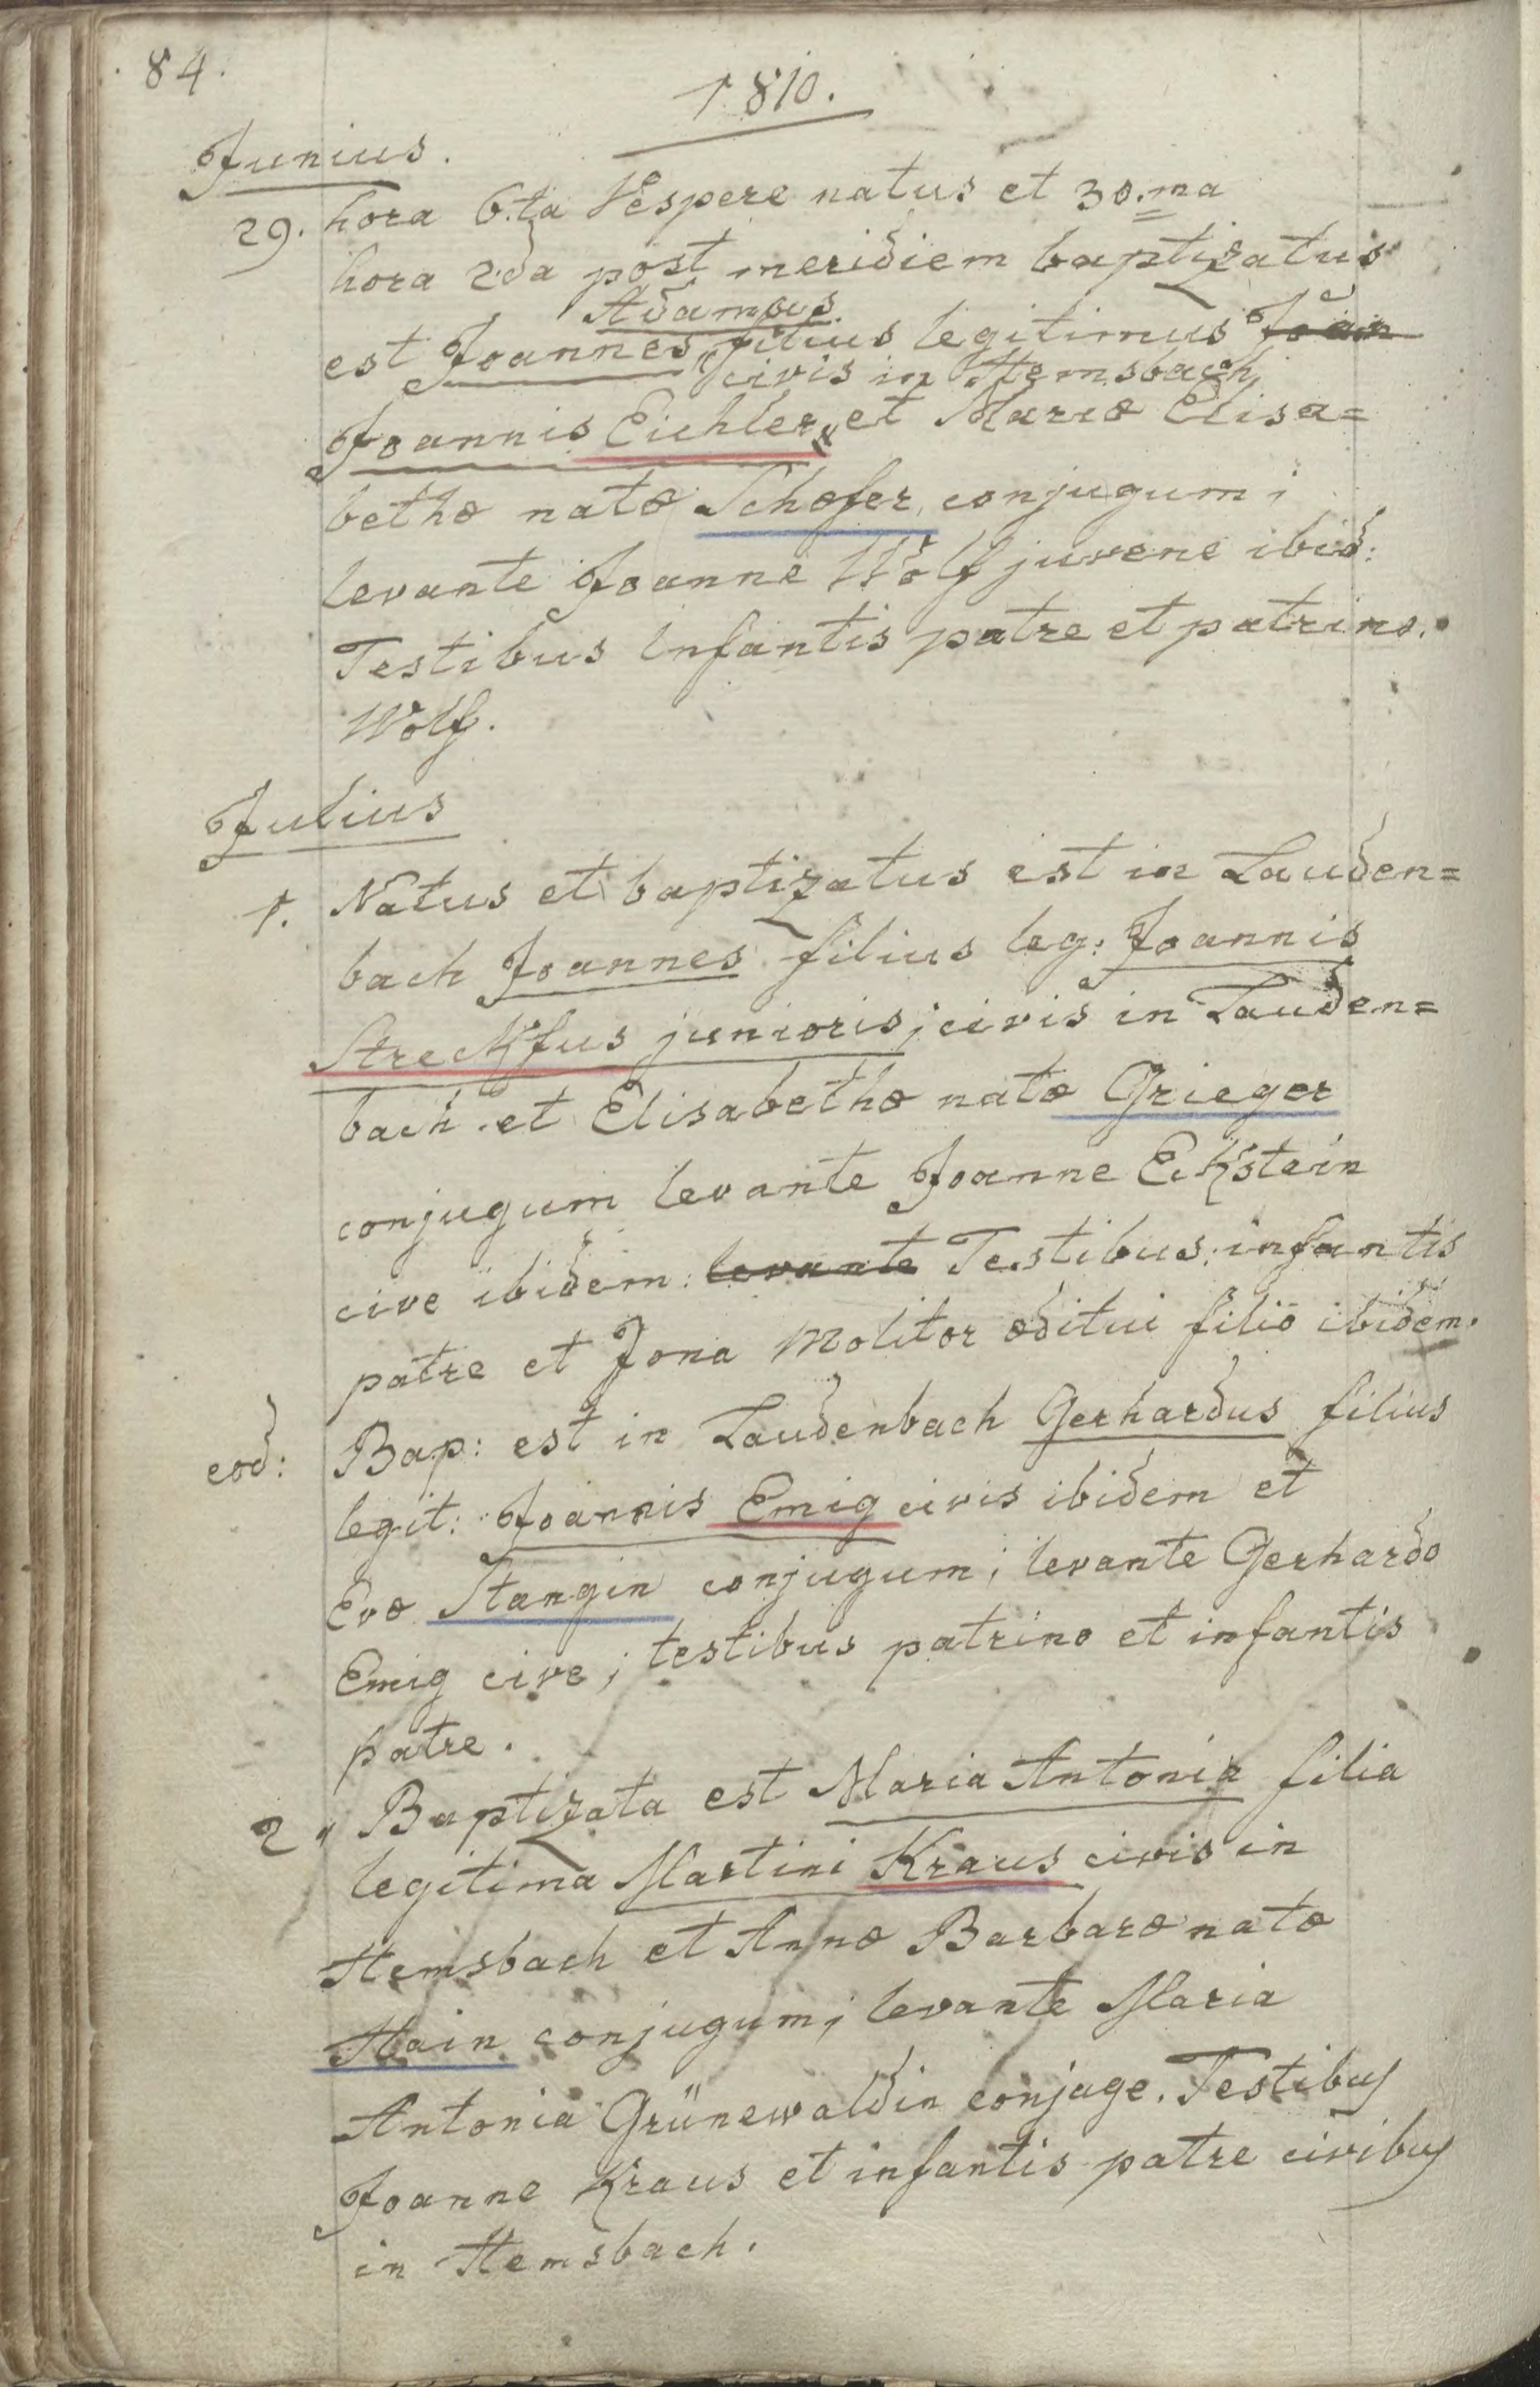 84.
1810.
Junius.
29. hora 6.ta Vespere natus et 30.ma
hora 2da post meridiem baptizatus
Adamus
est Joannes, filius legitimus Joan
civis in Hemsbach
Joannis Eichler, et Mariæ Elisa=
bethæ natæ Schæfer, conjugum;
levante Joanne Wolf juvene ibid:
Testibus Infantis patre et patrino.
Wolf.
Julius
1. Natus et baptizatus est in Lauden=
bach Joannes filius leg: Joannis
Streckfus junioris, civis in Lauden=
bach et Elisabethæ natæ Grieger
conjugum levante Joanne Eckstein
cive ibidem: levante Testibus: infantis
patre et Jona Molitor æditui filio ibidem.
eod: Bap: est in Laudenbach Gerhardus filius
legit: Joannis Emig civis ibidem et
Evæ Stangin conjugum; levante Gerhardo
Emig cive; testibus patrino et infantis
patre.
2. Baptizata est Maria Antonia filia
legitima Martini Kraus civis in
Hemsbach et Annæ Barbaræ natæ
Hain conjugum; levante Maria
Antonia Grünewaldin conjuge. Testibus
Joanne Kraus et infantis patre civibus
in Hemsbach.